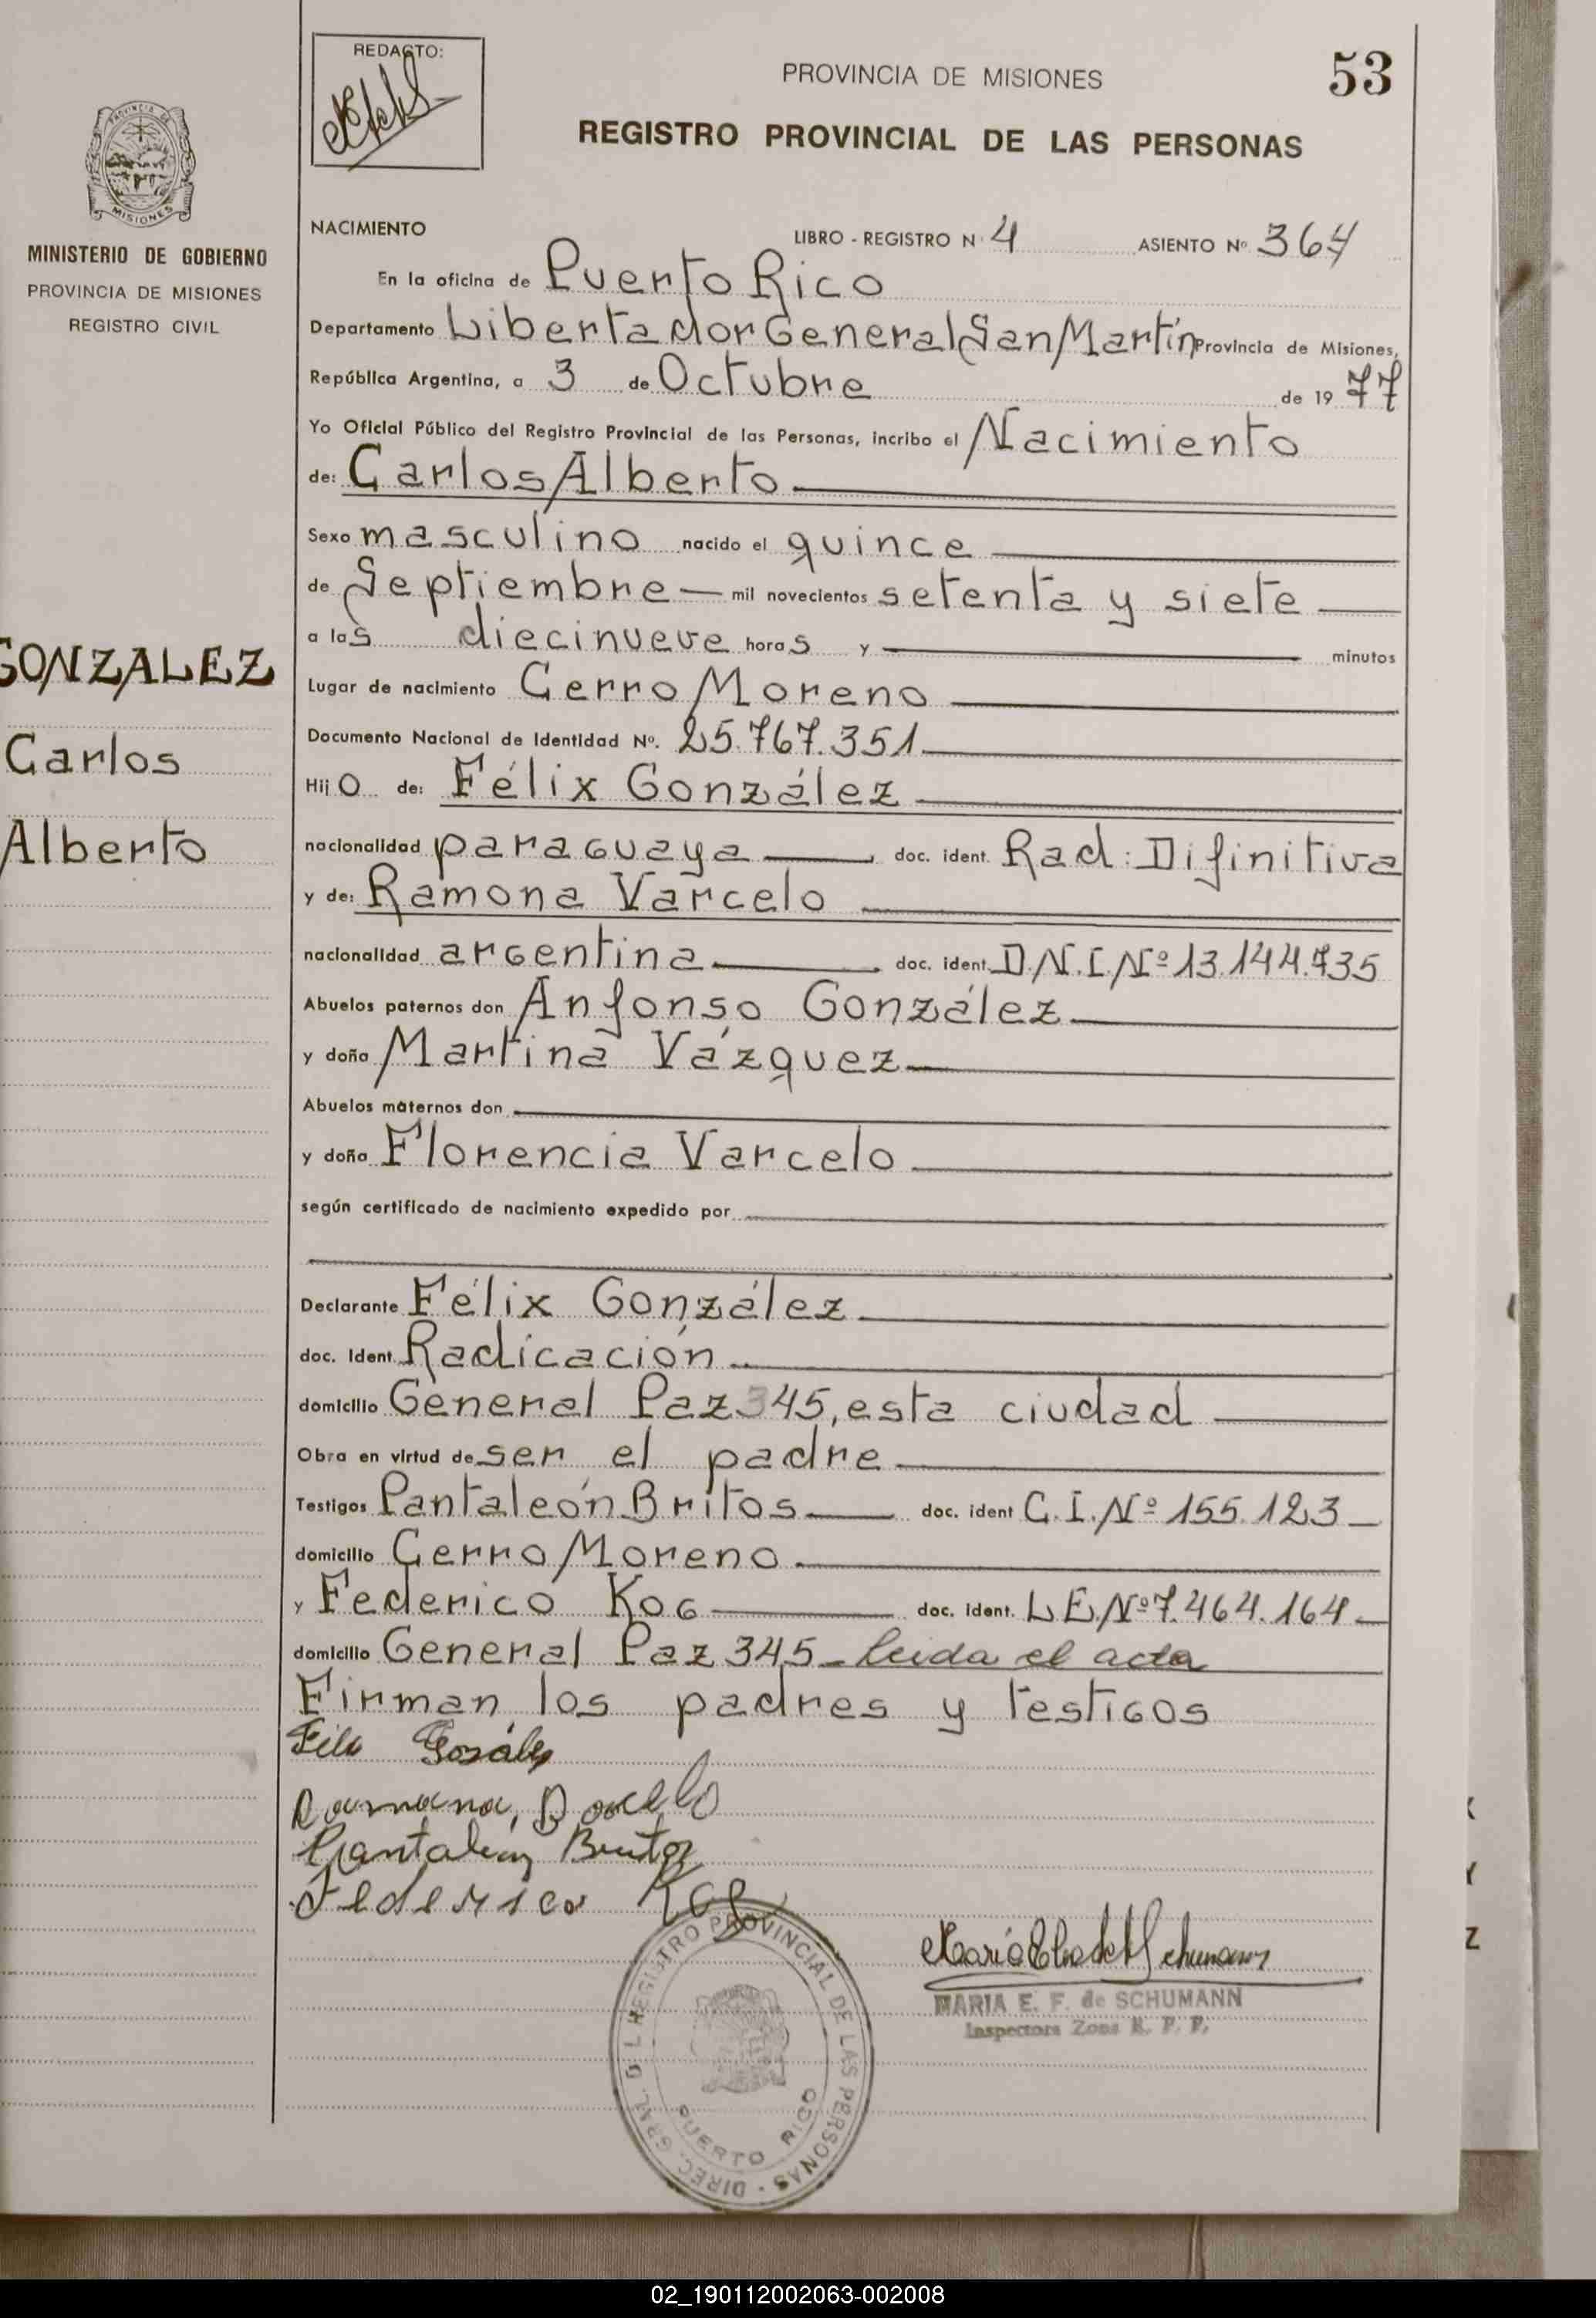 REDACTO:
PROVINCIA DE MISIONES
53
REGISTRO PROVINCIAL DE LAS PERSONAS
PROVINCIA DE
MISIONES
MINISTERIO DE GOBIERNO
PROVINCIA DE MISIONES
REGISTRO CIVIL
GONZALEZ
Carlos
Alberto
NACIMIENTO LIBRO - REGISTRO Nº 4 ASIENTO Nº 364
En la oficina de Puerto Rico
Departamento Libertador General San Martín Provincia de Misiones,
República Argentina, a 3 de Octubre de 1977
Yo Oficial Público del Registro Provincial de las Personas, incribo el Nacimiento
de: Carlos Alberto
Sexo masculino nacido el quince
de Septiembre mil novecientos setenta y siete
a las diecinueve horas y minutos
Lugar de nacimiento Cerro Moreno
Documento Nacional de Identidad Nº. 25.767.351
Hijo de: Félix González
nacionalidad paraguaya doc. ident. Rad: Difinitiva
y de: Ramona Varcelo
nacionalidad argentina doc. ident. D.N.I.Nº 13.144.735
Abuelos paternos don Anfonso González
y doña Martina Vázquez
Abuelos maternos don
y doña Florencia Varcelo
según certificado de nacimiento expedido por
Declarante Félix González
doc. Ident. Radicación
domicilio General Paz 345, esta ciudad
Obra en virtud de ser el padre
Testigos Pantaleón Britos doc. ident C.I.Nº 155.123
domicilio Cerro Moreno
y Federico Kog doc. ident. L.E.Nº 7.464.164
domicilio General Paz 345 leida el acta
Firman los padres y testigos
Ramona, Barcelo
Pantaleon Britos
Federico Kog
DIREC. GRAL. DEL REGISTRO PROVINCIAL DE LAS PERSONAS
PUERTO RICO
MARIA E. F. de SCHUMANN
Inspectora Zona R. P. P.
K
Y
Z
02_190112002063-002008